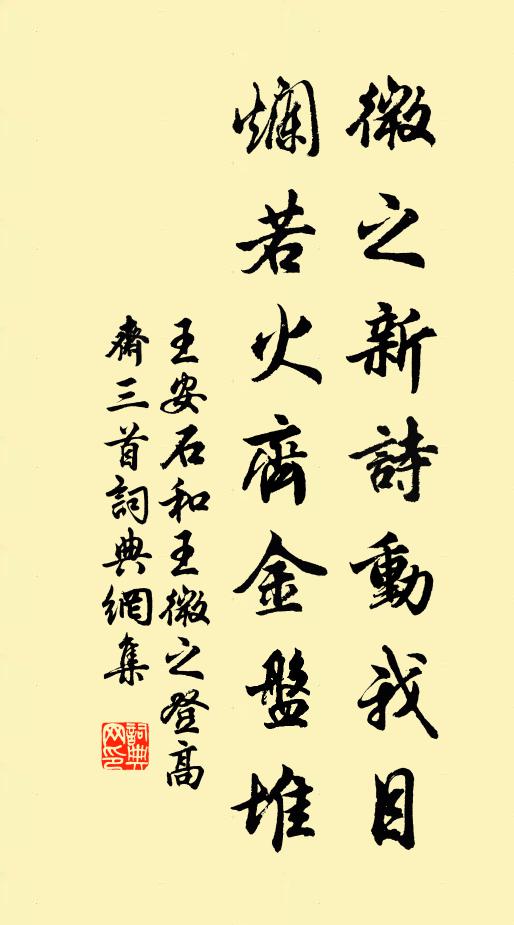 微之新詩動我目
爛若火齊金盤堆
王安石和王微之登高
齋三首詞典網集
詞典
网印